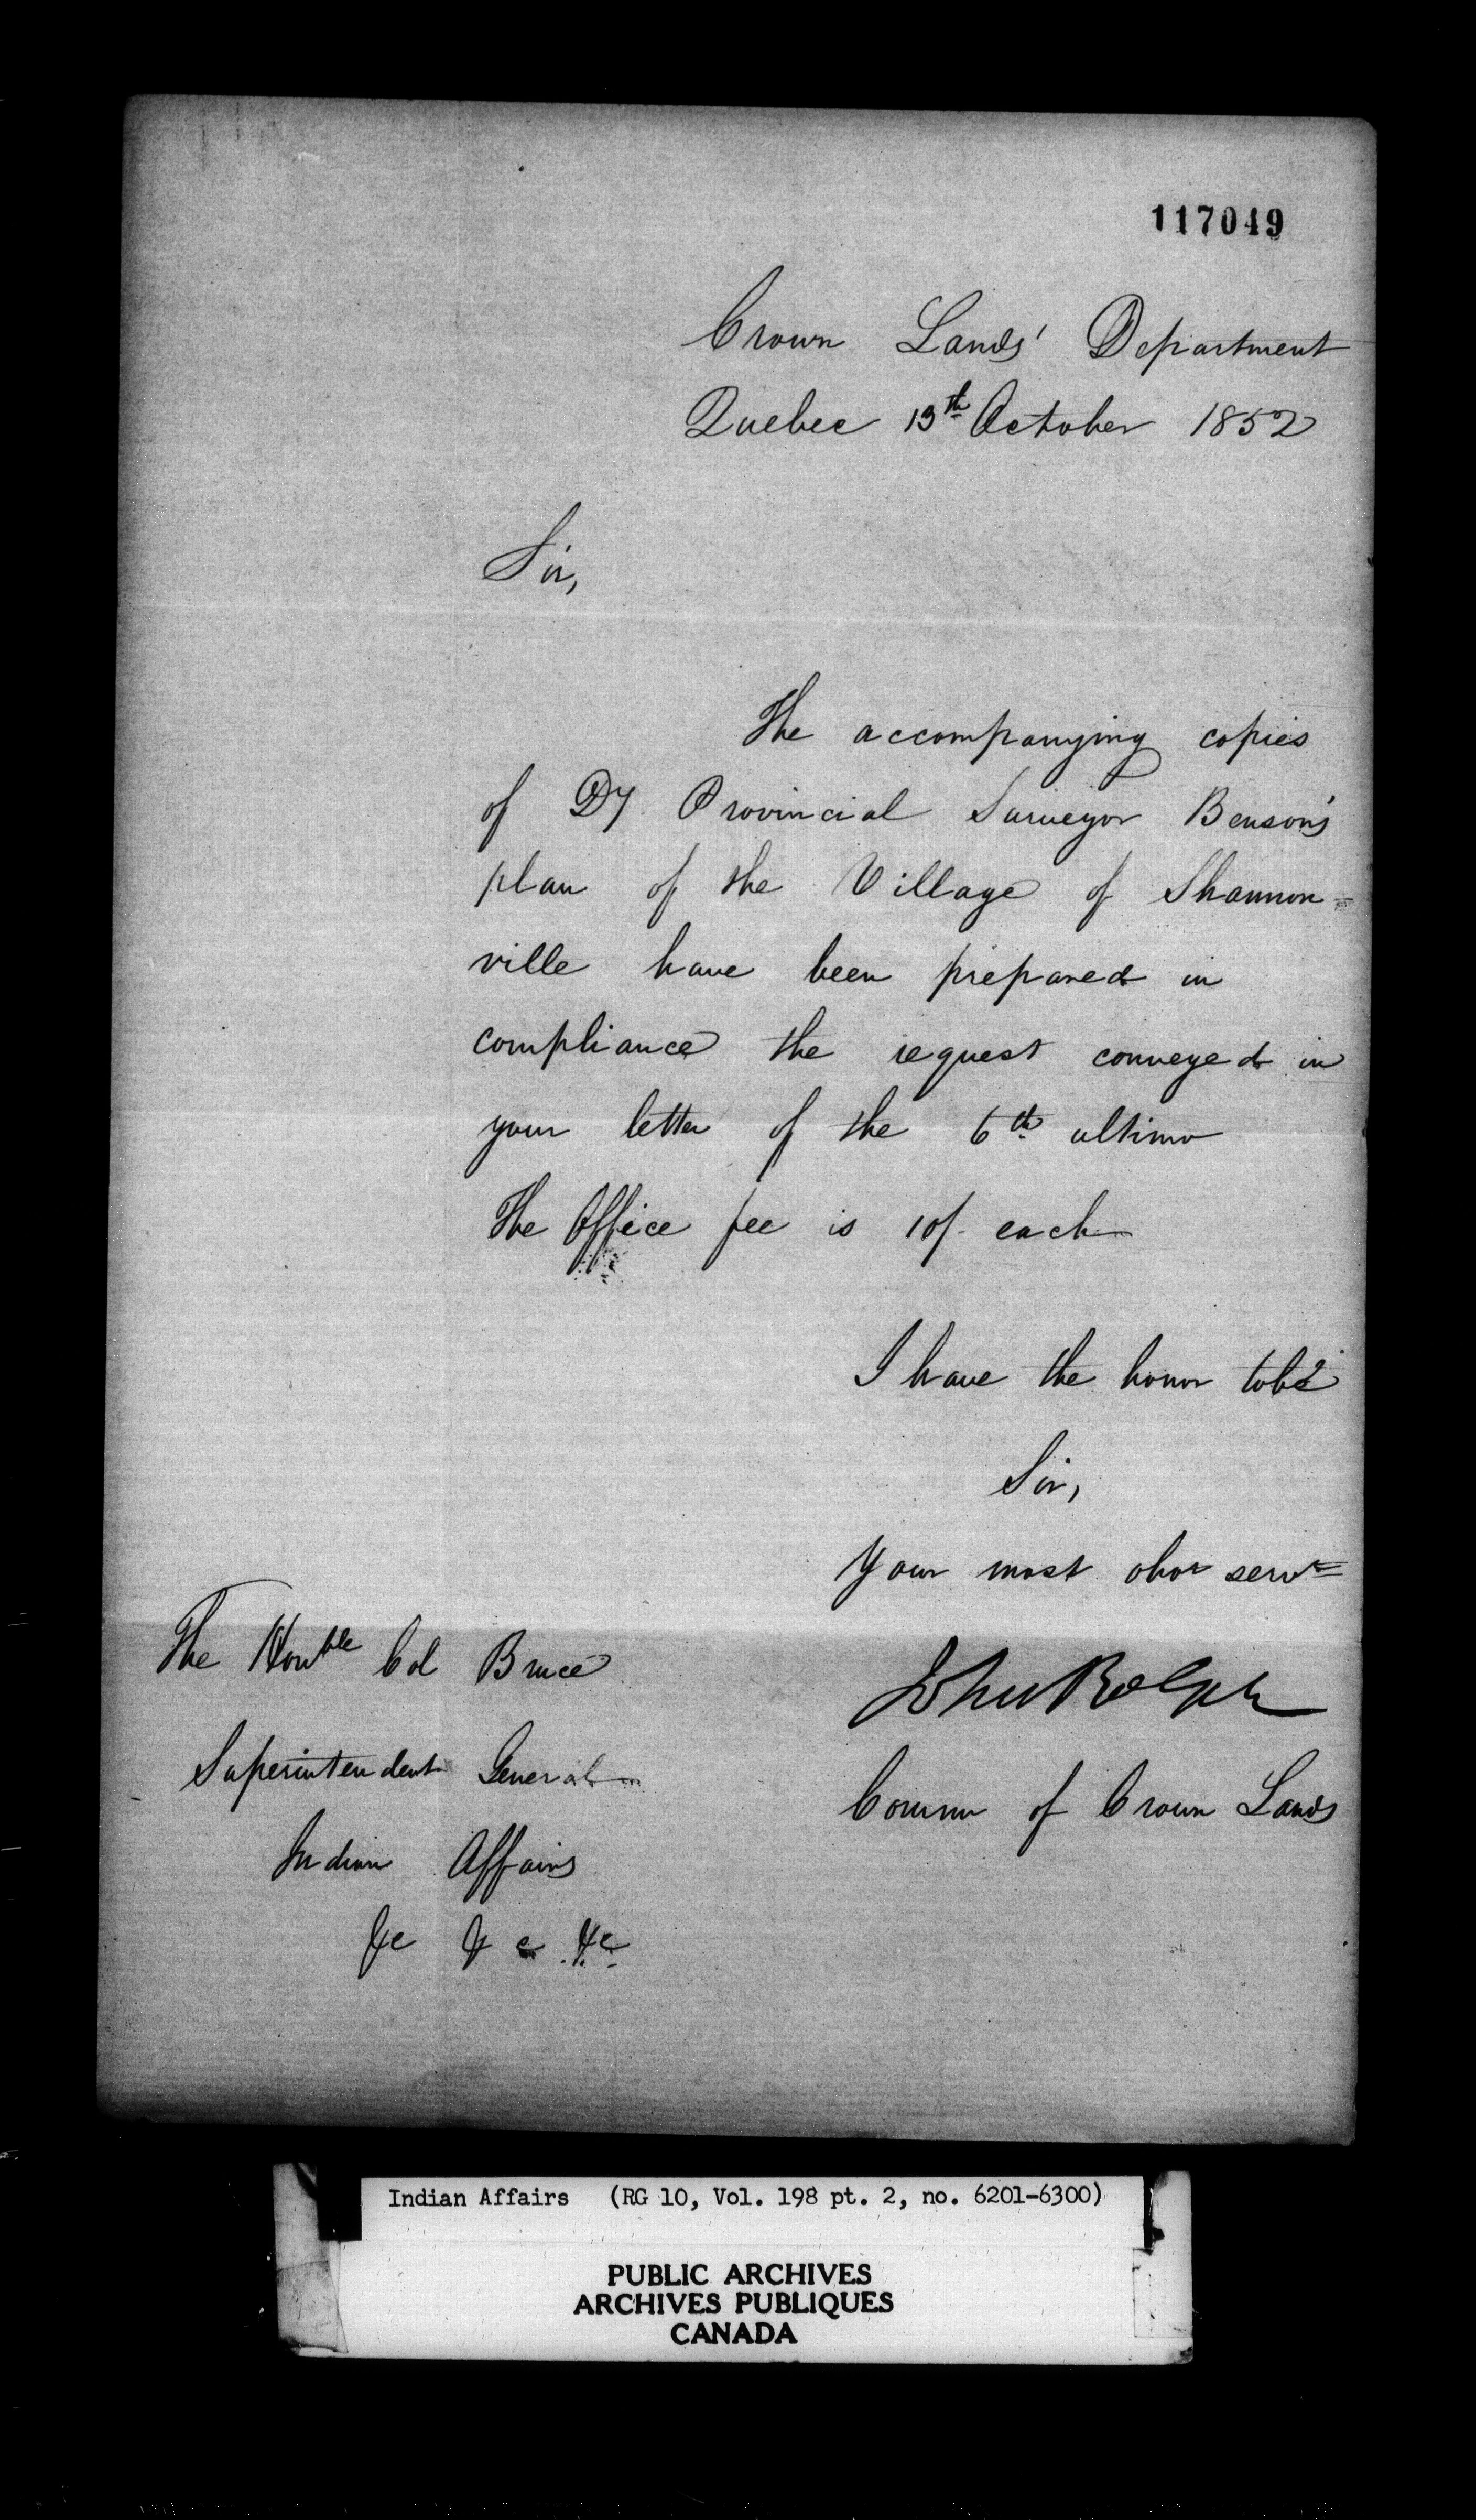 117049
Crown Lands' Department
Quebec 13th October 1852
Sir,
The accompanying copies
of Dy Provincial Surveyor Benson's
plan of the Village of Shannon=
ville have been prepared in
compliance the request conveyed in
your letter of the 6th ultimo
The Office fee is 10/. each
I have the honor to be
Sir,
Your most obdt servt
John Rolph
Commr of Crown Lands
The Honble Col Bruce
Superintendent General
Indian Affairs
&c &c &c
Indian Affairs (RG 10, Vol. 198 pt. 2, no. 6201-6300)
PUBLIC ARCHIVES
ARCHIVES PUBLIQUES
CANADA